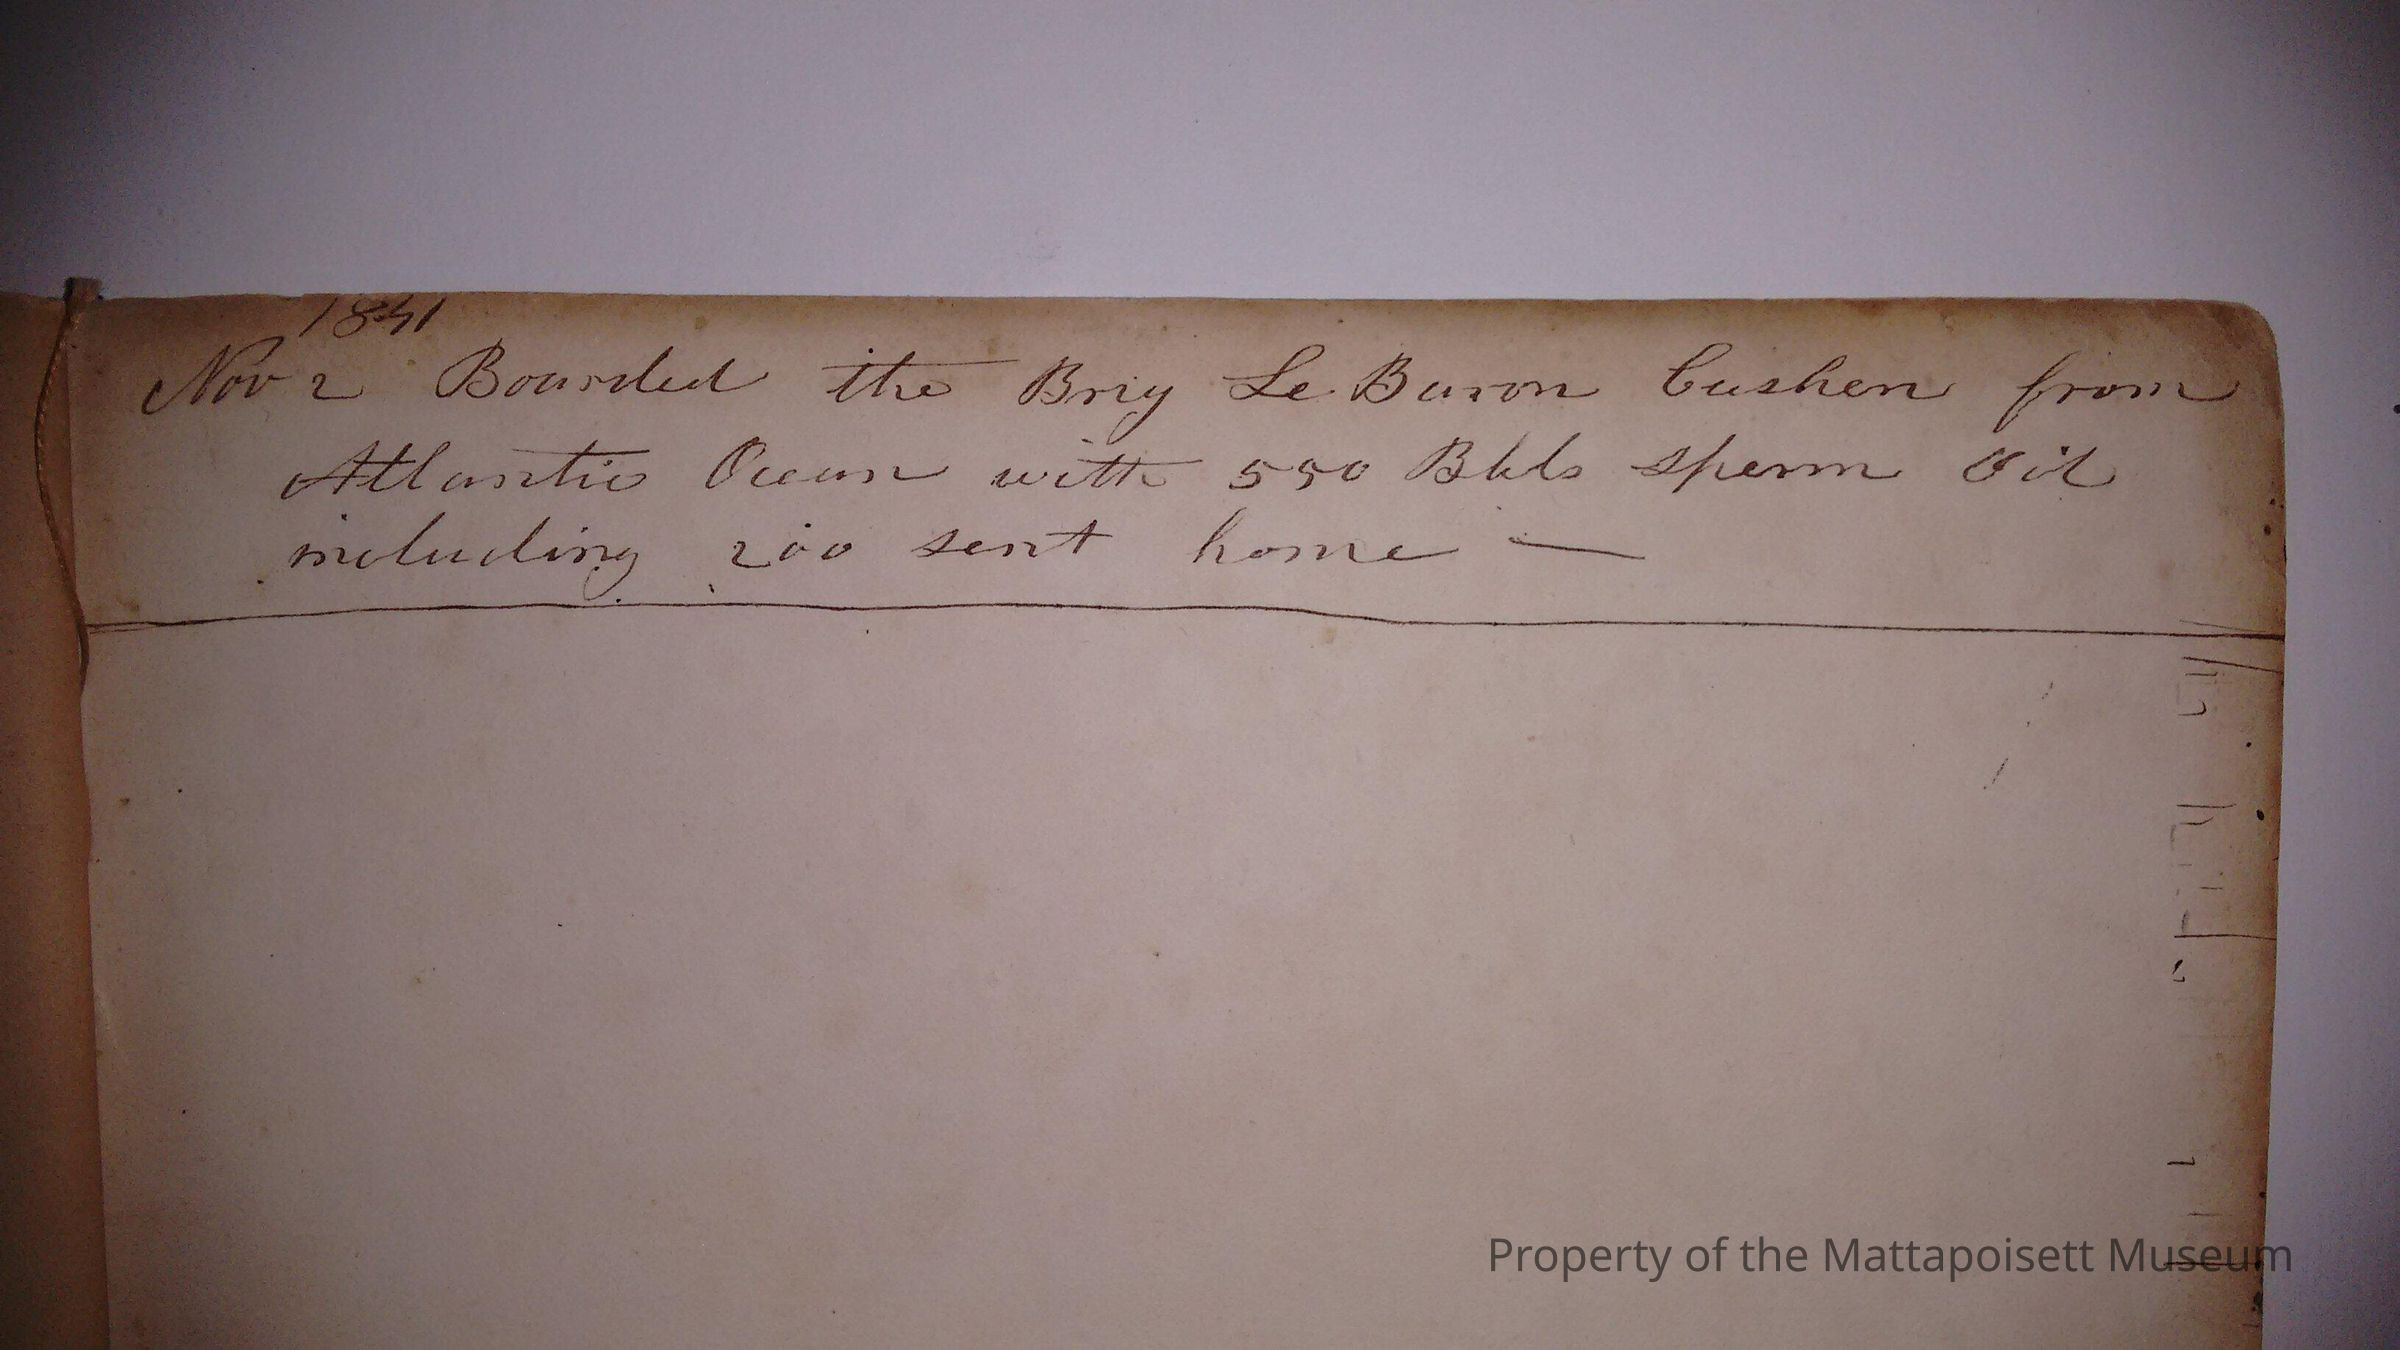 1841
Nov 2 Boarded the Brig Le Baron Cushen from
Atlantic Ocean with 550 Bbls sperm Oil
including 200 sent home —
Property of the Mattapoisett Museum